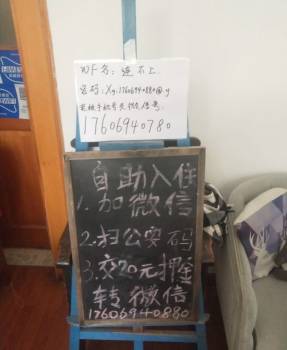 WF名：连不上
密码：Xy.17606940880@.y
老板手机号是微信号
17606940780
自助入住
1.加微信
2.扫公安码
3.交20元押金
转微信
17606940880